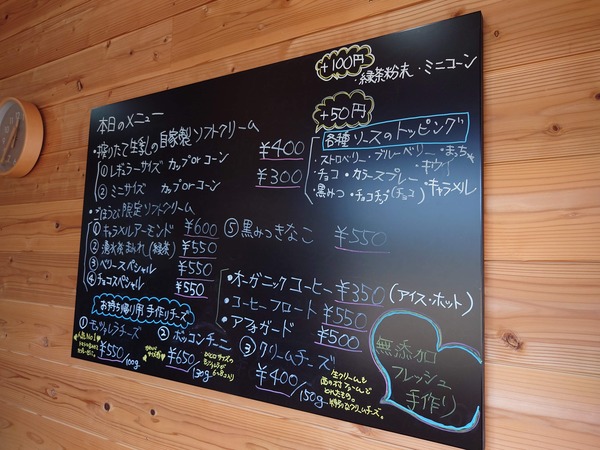 本日のメニュー
・搾りたて生乳の自家製ソフトクリーム
① レギュラーサイズ カップorコーン ¥400
② ミニサイズ カップorコーン ¥300
・ごほうび限定ソフトクリーム
① キャラメルアーモンド ¥600
② 湧水茶まみれ(緑茶) ¥550
③ ベリースペシャル ¥550
④ チョコスペシャル ¥550
⑤ 黒みつきなこ ¥550
+100円
・緑茶粉末・ミニコーン
+50円
各種ソースのトッピング
・ストロベリー・ブルーベリー・まっちゃ
・チョコ・カラースプレー・キウイ
・黒みつ・チョコチップ(チョコ)・キャラメル
・オーガニックコーヒー ¥350 (アイス・ホット)
・コーヒーフロート ¥550
・アフォガード ¥500
お持ち帰り用 手作りチーズ
① モッツァレラチーズ
人気No1
¥550/100g
② ボッコンチーニ
¥650/130g
③ クリームチーズ
¥400/150g
無添加
フレッシュ
手作り